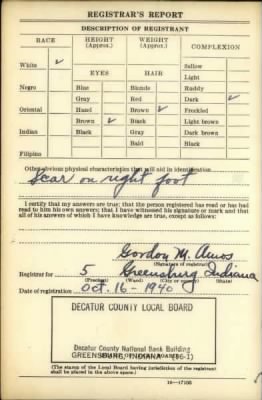 REGISTRAR'S REPORT
DESCRIPTION OF REGISTRANT
RACE HEIGHT (Approx.) WEIGHT (Approx.) COMPLEXION
White ✓ Sallow
EYES HAIR Light
Negro Blue Blonde Ruddy
Gray Red Dark ✓
Oriental Hazel Brown ✓ Freckled
Brown ✓ Black Light brown
Indian Black Gray Dark brown
Bald Black
Filipino
Other obvious physical characteristics that will aid in identification
Scar on right foot
I certify that my answers are true; that the person registered has read or has had
read to him his own answers; that I have witnessed his signature or mark and that
all of his answers of which I have knowledge are true, except as follows:
Gordon M. Amos
(Signature of registrar)
Registrar for 5 Greensburg Indiana
(Precinct) (Ward) (City or county) (State)
Date of registration Oct. 16 - 1940
DECATUR COUNTY LOCAL BOARD
Decatur County National Bank Building
GREENSBURG, INDIANA (16-1)
(The stamp of the Local Board having jurisdiction of the registrant
shall be placed in the above space.)